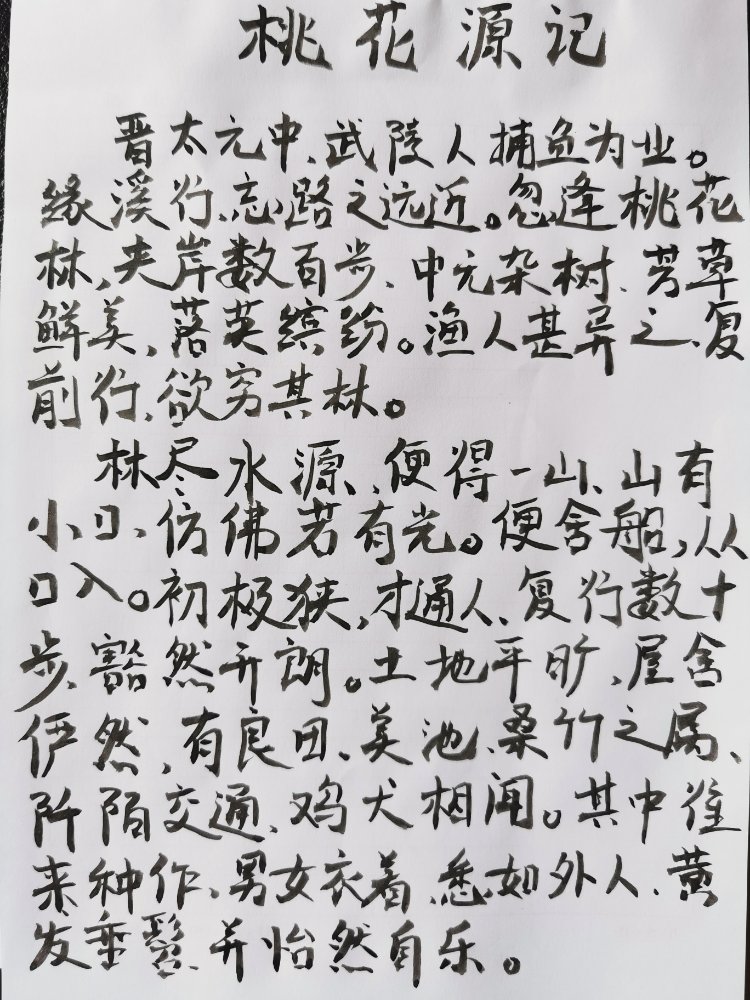 桃花源记
晋太元中、武陵人捕鱼为业。
缘溪行、忘路之远近。忽逢桃花
林,夹岸数百步、中无杂树、芳草
鲜美,落英缤纷。渔人甚异之、复
前行、欲穷其林。
林尽水源、便得一山、山有
小口、仿佛若有光。便舍船,从
口入。初极狭,才通人、复行数十
步、豁然开朗。土地平旷、屋舍
俨然,有良田、美池、桑竹之属、
阡陌交通、鸡犬相闻。其中往
来种作、男女衣着、悉如外人、黄
发垂髫、并怡然自乐。